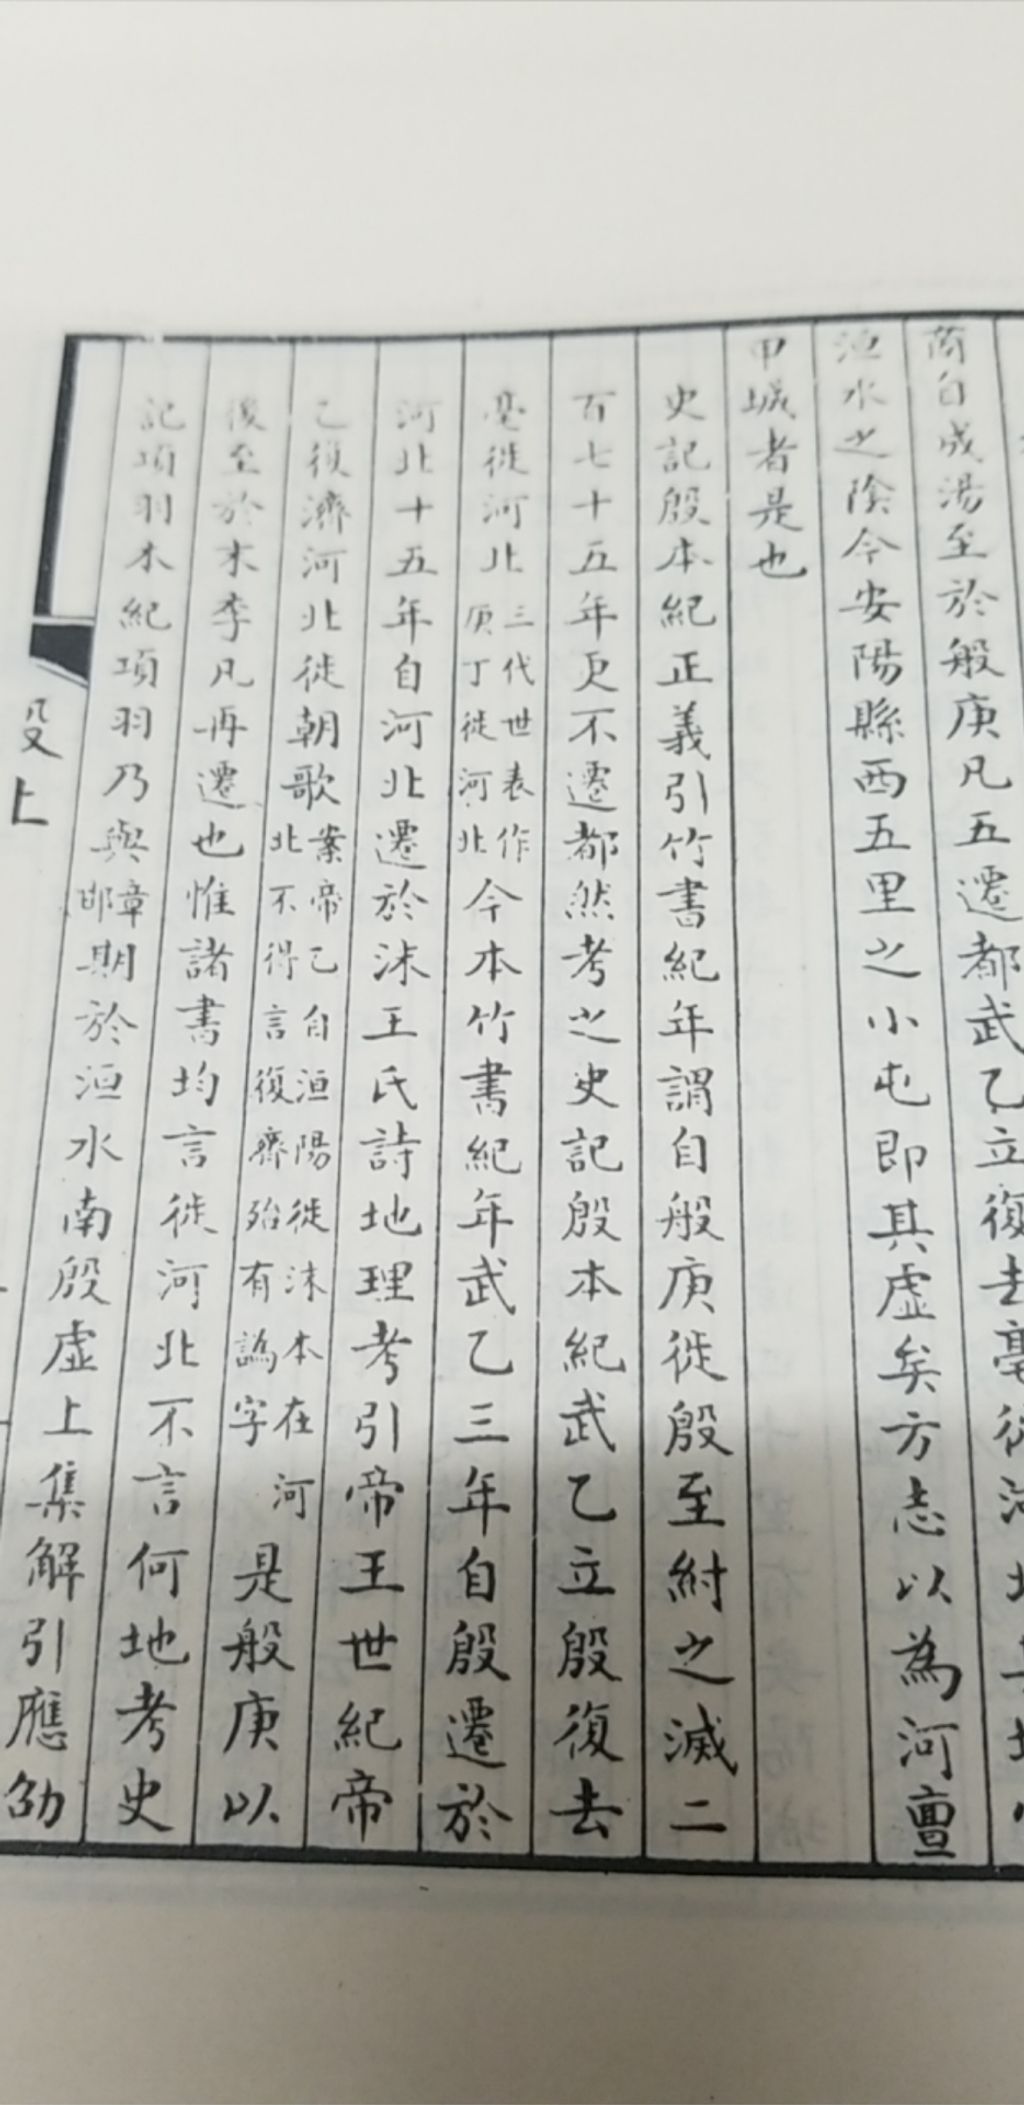 商自成湯至於般庚凡五遷都武乙立復去亳徙河北
洹水之陰今安陽縣西五里之小屯即其虛矣方志以為河亶
甲城者是也
史記殷本紀正義引竹書紀年謂自般庚徙殷至紂之滅二
百七十五年更不遷都然考之史記殷本紀武乙立殷復去
亳徙河北三代世表作庚丁徙河北今本竹書紀年武乙三年自殷遷於
河北十五年自河北遷於沬王氏詩地理考引帝王世紀帝
乙復濟河北徙朝歌案帝乙自洹陽徙沬本在河北不得言復齊殆有譌字是般庚以
後至於末季凡再遷也惟諸書均言徙河北不言何地考史
記項羽本紀項羽乃與章邯期於洹水南殷虛上集解引應劭
殷上